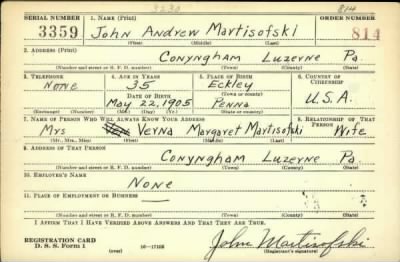 3230 814
SERIAL NUMBER 1. NAME (Print) ORDER NUMBER
3359 John Andrew Martisofski 814
(First) (Middle) (Last)
2. ADDRESS (Print)
Conyngham Luzerne Pa.
(Number and street or R. F. D. number) (Town) (County) (State)
3. TELEPHONE 4. AGE IN YEARS 5. PLACE OF BIRTH 6. COUNTRY OF CITIZENSHIP
None 35 Eckley
DATE OF BIRTH (Town or county)
May 22, 1905 Penna U.S.A.
(Exchange) (Number) (Mo.) (Day) (Yr.) (State or country)
7. NAME OF PERSON WHO WILL ALWAYS KNOW YOUR ADDRESS 8. RELATIONSHIP OF THAT PERSON
Mrs Verna Margaret Martisofski Wife
(Mr., Mrs., Miss) (First) (Middle) (Last)
9. ADDRESS OF THAT PERSON
Conyngham Luzerne Pa.
(Number and street or R. F. D. number) (Town) (County) (State)
10. EMPLOYER'S NAME
None
11. PLACE OF EMPLOYMENT OR BUSINESS
(Number and street or R. F. D. number) (Town) (County) (State)
I AFFIRM THAT I HAVE VERIFIED ABOVE ANSWERS AND THAT THEY ARE TRUE.
REGISTRATION CARD
D. S. S. Form 1 (over) John Martisofski
(Registrant's signature)